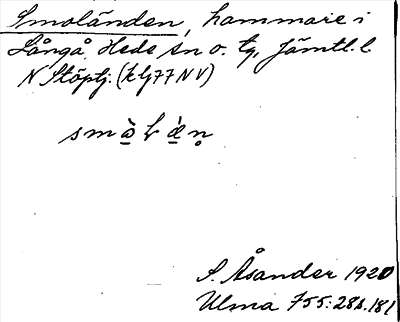 Smoländen, hammare i
Långå, Hede sn o. tg, Jämtl. l.
N Stöptj: (klj77NV)
S. Åsander 1920
Ulma 755:28b.181